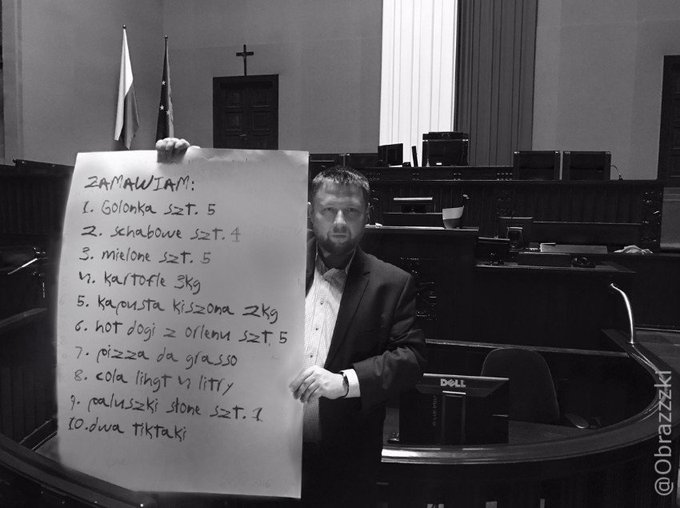 ZAMAWIAM:
1. Golonka szt. 5
2. schabowe szt. 4
3. mielone szt. 5
4. kartofle 3kg
5. kapusta kiszona 2kg
6. hot dogi z orlenu szt 5
7. pizza da grasso
8. cola lihgt 4 litry
9. paluszki słone szt. 1
10. dwa tiktaki
DELL
@Obrazzzki